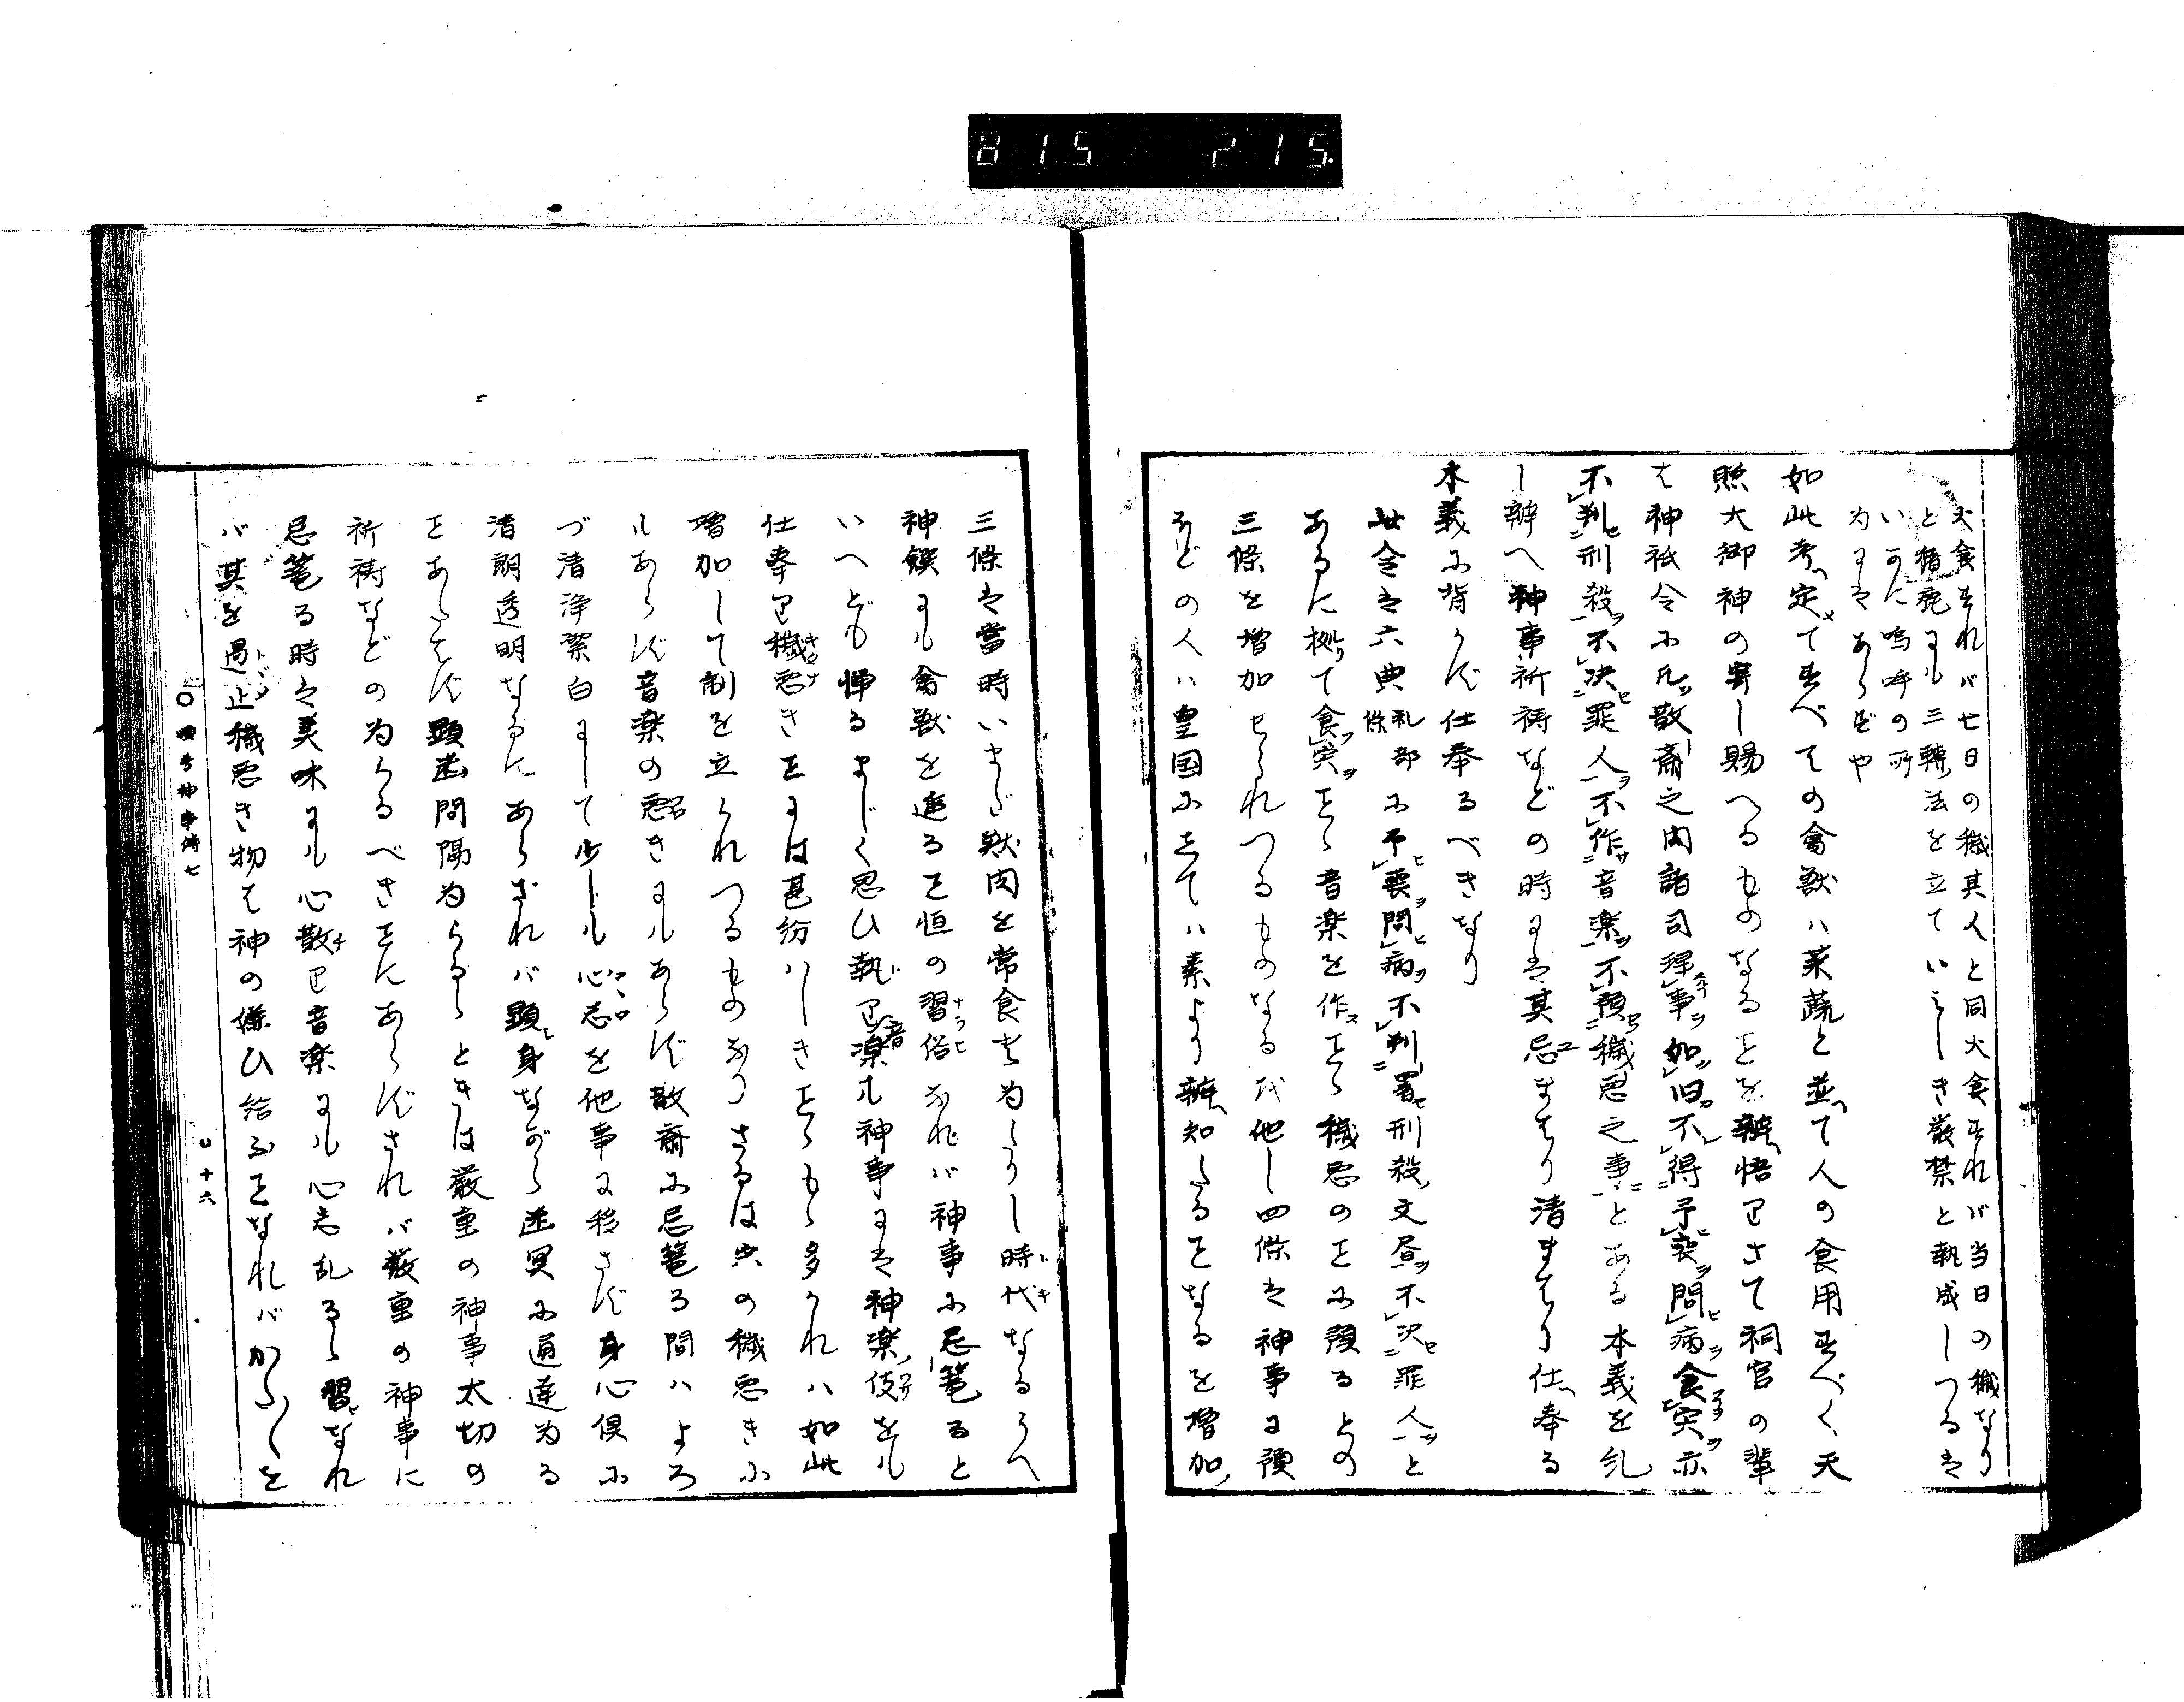 815 215.
犬食すれバ七日の穢其人と同火食すれバ当日の穢なり
と猪鹿にも三轉法を立ていミしき嚴禁と執成しつるは
いかに嗚呼の所
為にはあらずや
如此考定てすべての禽獣ハ菜蔬と並て人の食用すべく天
照大御神の寄し賜へるものなることを辨悟りさて祠官の輩
は神祇令に凡散齋之内諸司理事如旧不得弔喪問病食宍亦
不判刑殺不決罪人不作音楽不預穢悪之事とある本義を糺
し辨へ神事祈祷などの時には其忌まはり清まはり仕奉る
本義に背かず仕奉るべきなり
此令は六典礼部條に不弔喪問病不判署刑殺文書不決罪人と
あるに拠て食宍こと音楽を作こと穢悪のことに預るとの
三條を増加せられつるものなるが他し四條は神事に預
るどの人ハ皇国にしてハ素より辨知たることなるを増加
三條は當時いまだ獣肉を常食と為たりし時代なるうへ
神饌にも禽獣を進ること恒の習俗なれバ神事に忌篭ると
いへども憚るまじく思ひ執り音楽も神事には神楽伎をも
仕奉り穢悪きことには甚紛ハしきことも多かれハ如此
増加して制を立られつるものなりさるは宍の穢悪きに
もあらず音楽の悪きにもあらず散齋に忌篭る間ハよろ
づ清浄潔白にして少しも心志を他事に移さず身心倶に
清朗透明なるにあらざれバ顕身ながら幽冥に通達為る
ことあたはず顕幽問隔為らるゝときは嚴重の神事太切の
祈祷などの為らるべきことにあらずされバ嚴重の神事に
忌篭る時は美味にも心散り音楽にも心志乱るゝ習なれ
バ其を遏止穢悪き物は神の嫌ひ給ふことなれバかたく を
○ 神事傳七
○十六